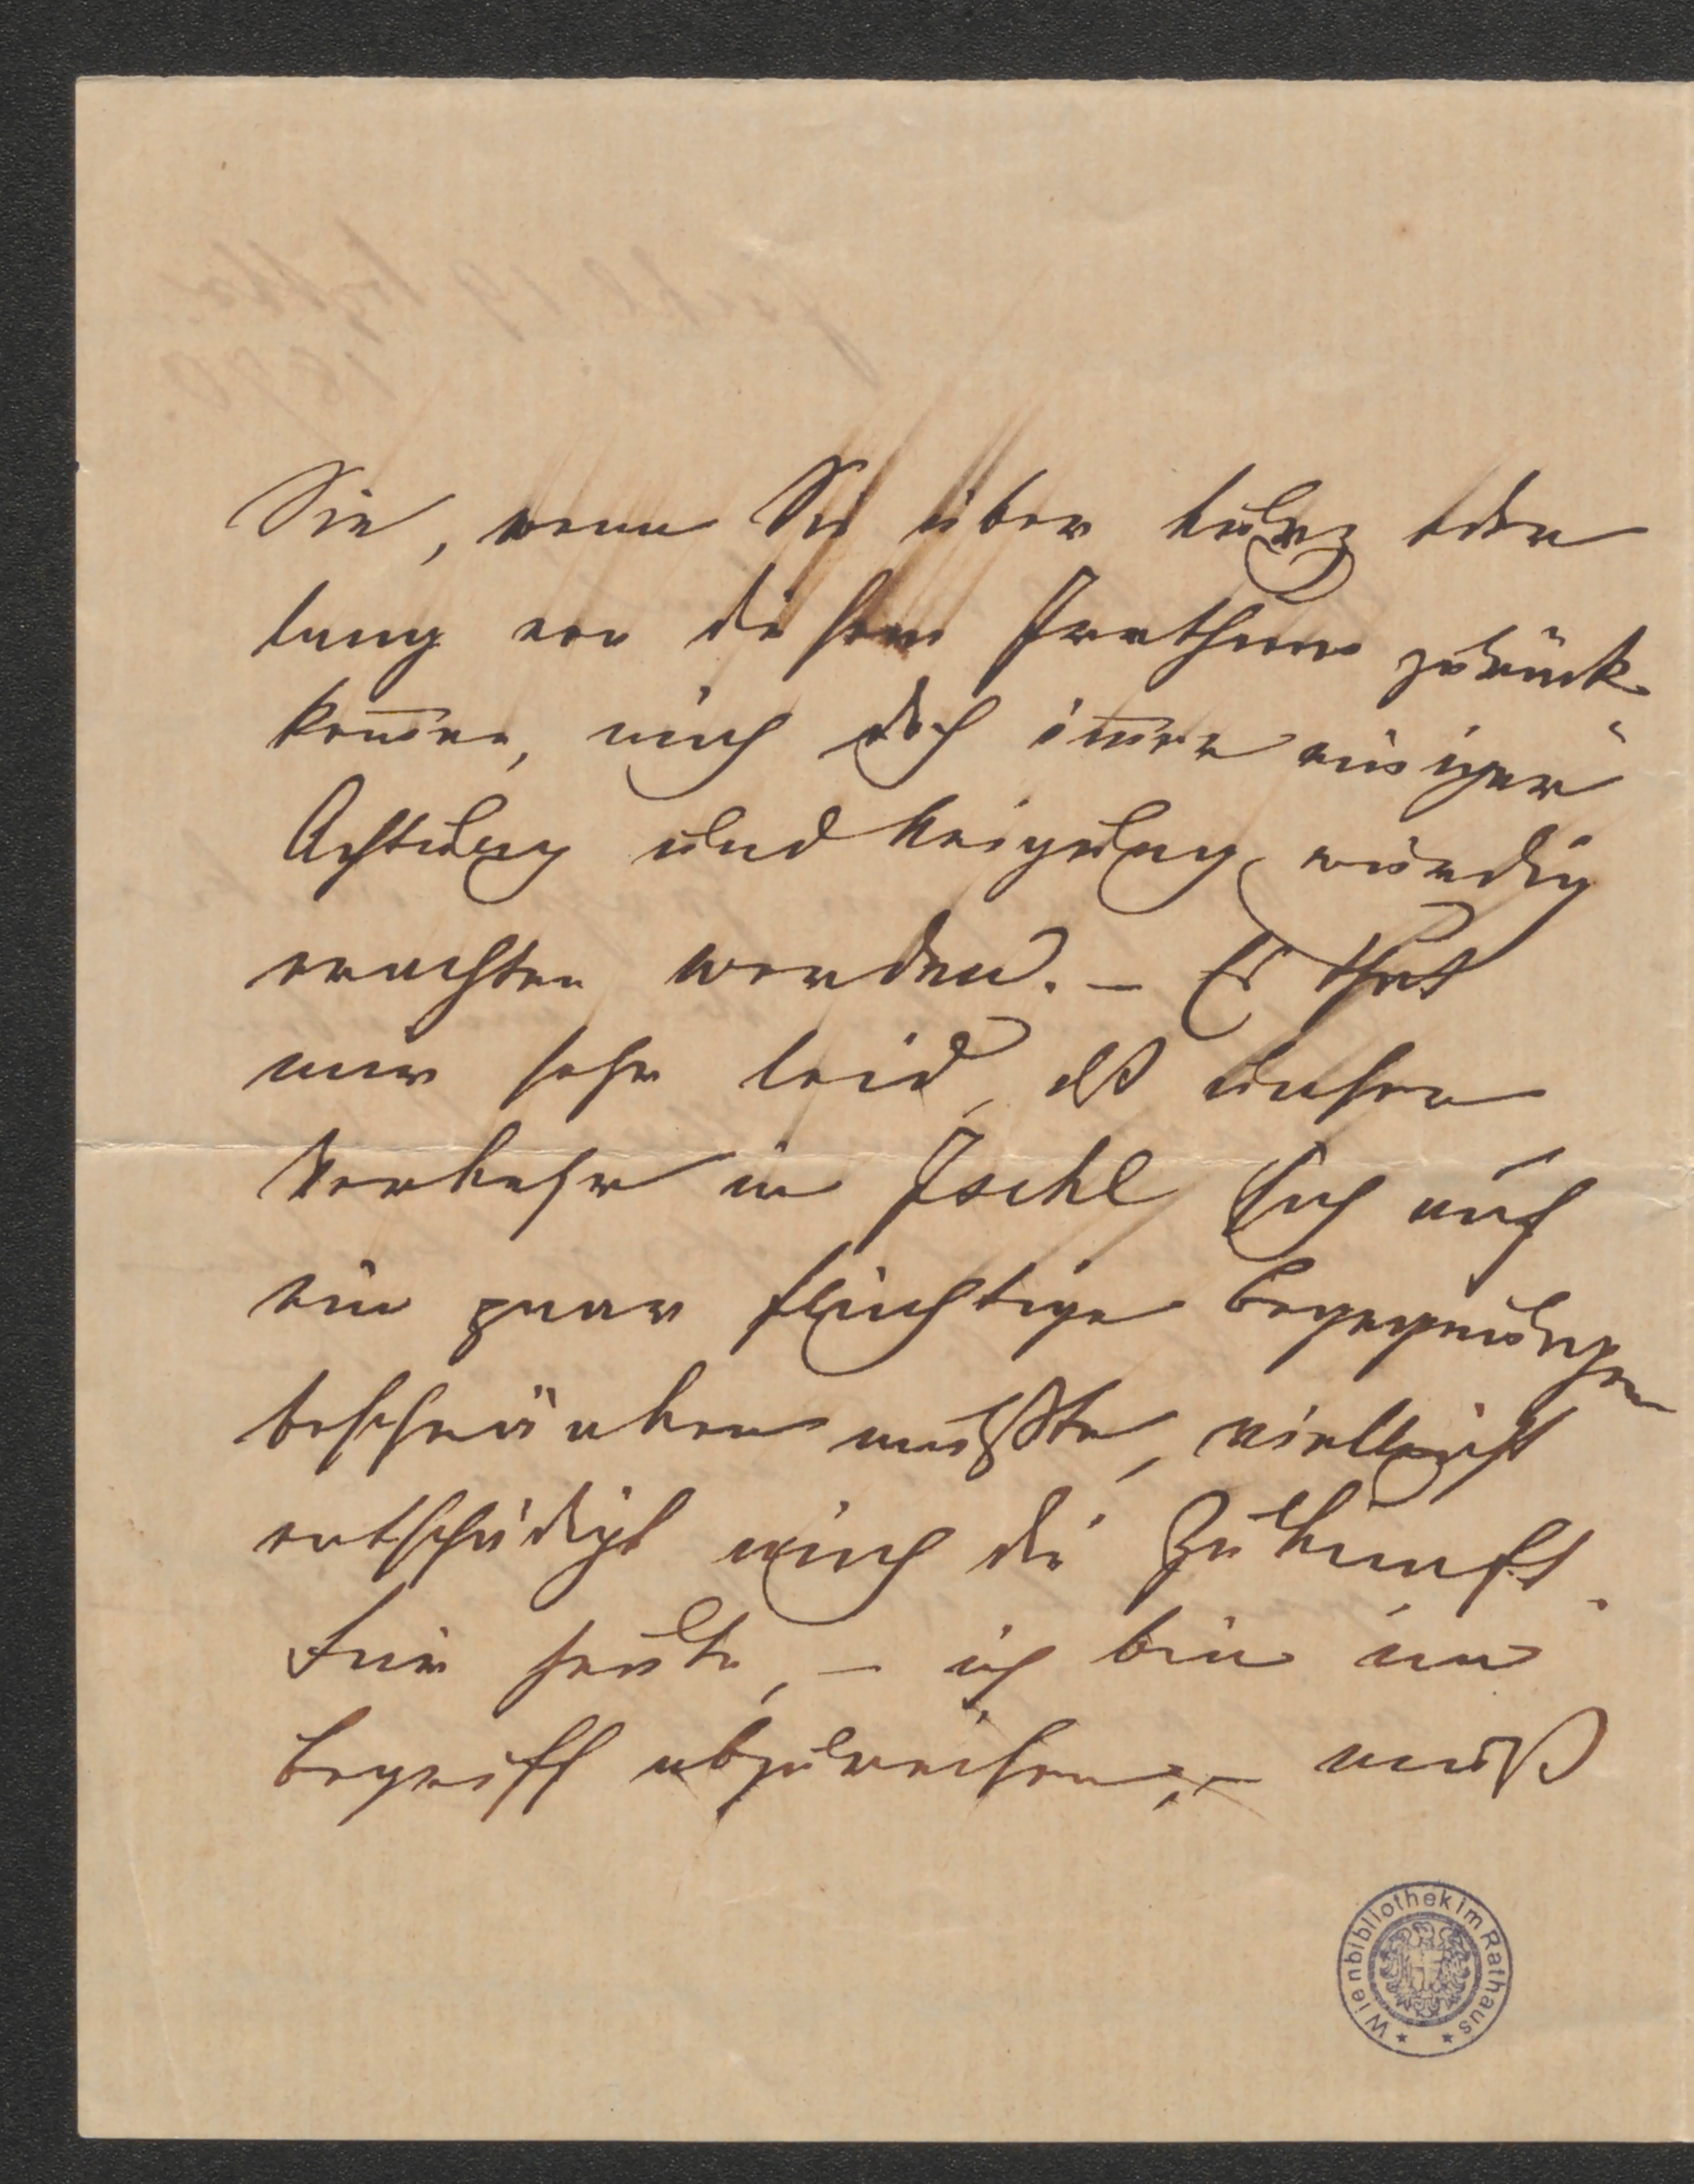 Sie, wenn Sie über kurz oder
lang von diesem Irrthum zurück
kom̅en, mich doch im̅er einiger
Achtung und Neigung würdig
erachten werden. – Es that
mir sehr leid, daß unser
Verkehr in Ischl sich auf
ein paar flüchtige Begegnungen
beschränken mußte, vielleicht
entschädigt mich die Zukunft.
Für heute, – ich bin im
Begriff abzureisen, – muß
WienbibliothekimRathaus